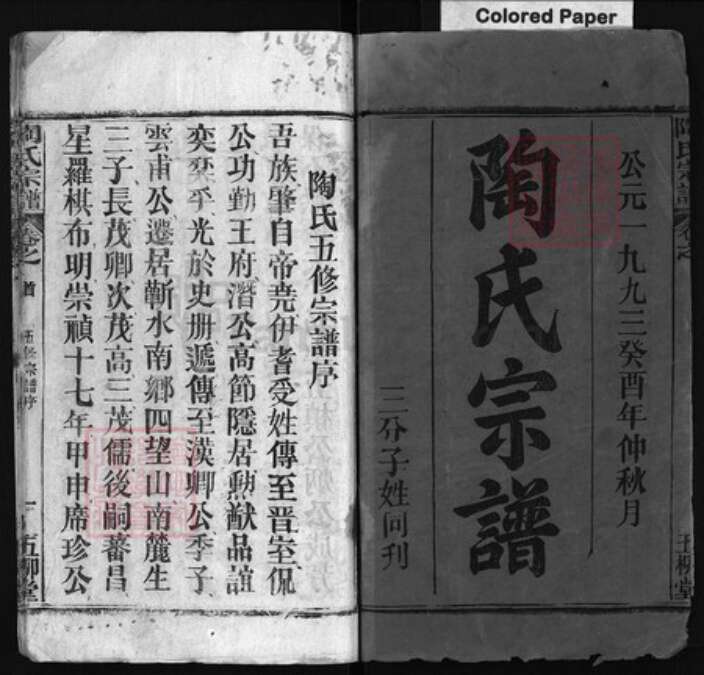 Colored Paper
公元一九九三癸酉年仲秋月
陶氏宗譜
三分子姓同刊
陶氏宗譜
卷之
五柳堂
陶氏五修宗譜序
吾族肇自帝堯伊耆受姓傳至晉室侃
公功勤王府潛公高節隱居勳猷品誼
奕奕乎光於史册遞傳至漢卿公季子
雲甫公遷居蘄水南鄉四望山南麓生
三子長茂卿次茂高三茂儒後嗣蕃昌
星羅棋布明崇禎十七年甲申席珍公
陶氏宗譜
卷之首
五修宗譜序
一
五柳堂